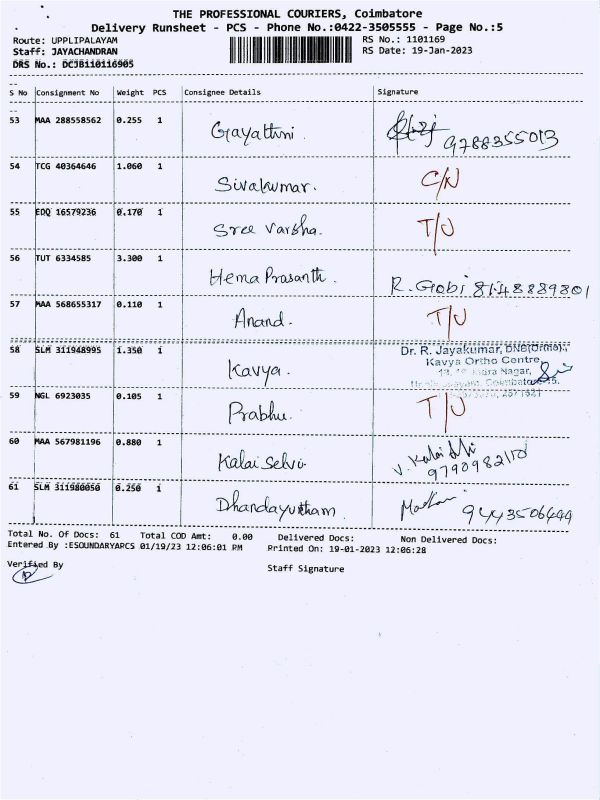 THE PROFESSIONAL COURIERS, Coimbatore
Delivery Runsheet - PCS - Phone No.:0422-3505555 - Page No.:5
Route: UPPLIPALAYAM RS No.: 1101169
Staff: JAYACHANDRAN RS Date: 19-Jan-2023
DRS No.: DCJB110116905
S No Consignment No Weight PCS Consignee Details Signature
53 MAA 288558562 0.255 1 Gayathri 9788355013
54 TCG 40364646 1.060 1 Sivakumar. C/N
55 EDQ 16579236 0.170 1 Sree Varsha. T/U
56 TUT 6334585 3.300 1 Hema Prasanth. R. Gobi 8148889801
57 MAA 568655317 0.110 1 Anand. T/U
58 SLM 311948995 1.350 1 Kavya. Dr. R. Jayakumar, DNB(Ortho).,
Kavya Ortho Centre,
Nagar,
59 NGL 6923035 0.105 1 Prabhu. T/U
60 MAA 567981196 0.880 1 Kalai Selvi. V. Kalai
9790982110
61 SLM 311980050 0.250 1 Dhandayutham. 9443506444
Total No. Of Docs: 61 Total COD Amt: 0.00 Delivered Docs: Non Delivered Docs:
Entered By :ESOUNDARYARCS 01/19/23 12:06:01 PM Printed On: 19-01-2023 12:06:28
Verified By
Staff Signature